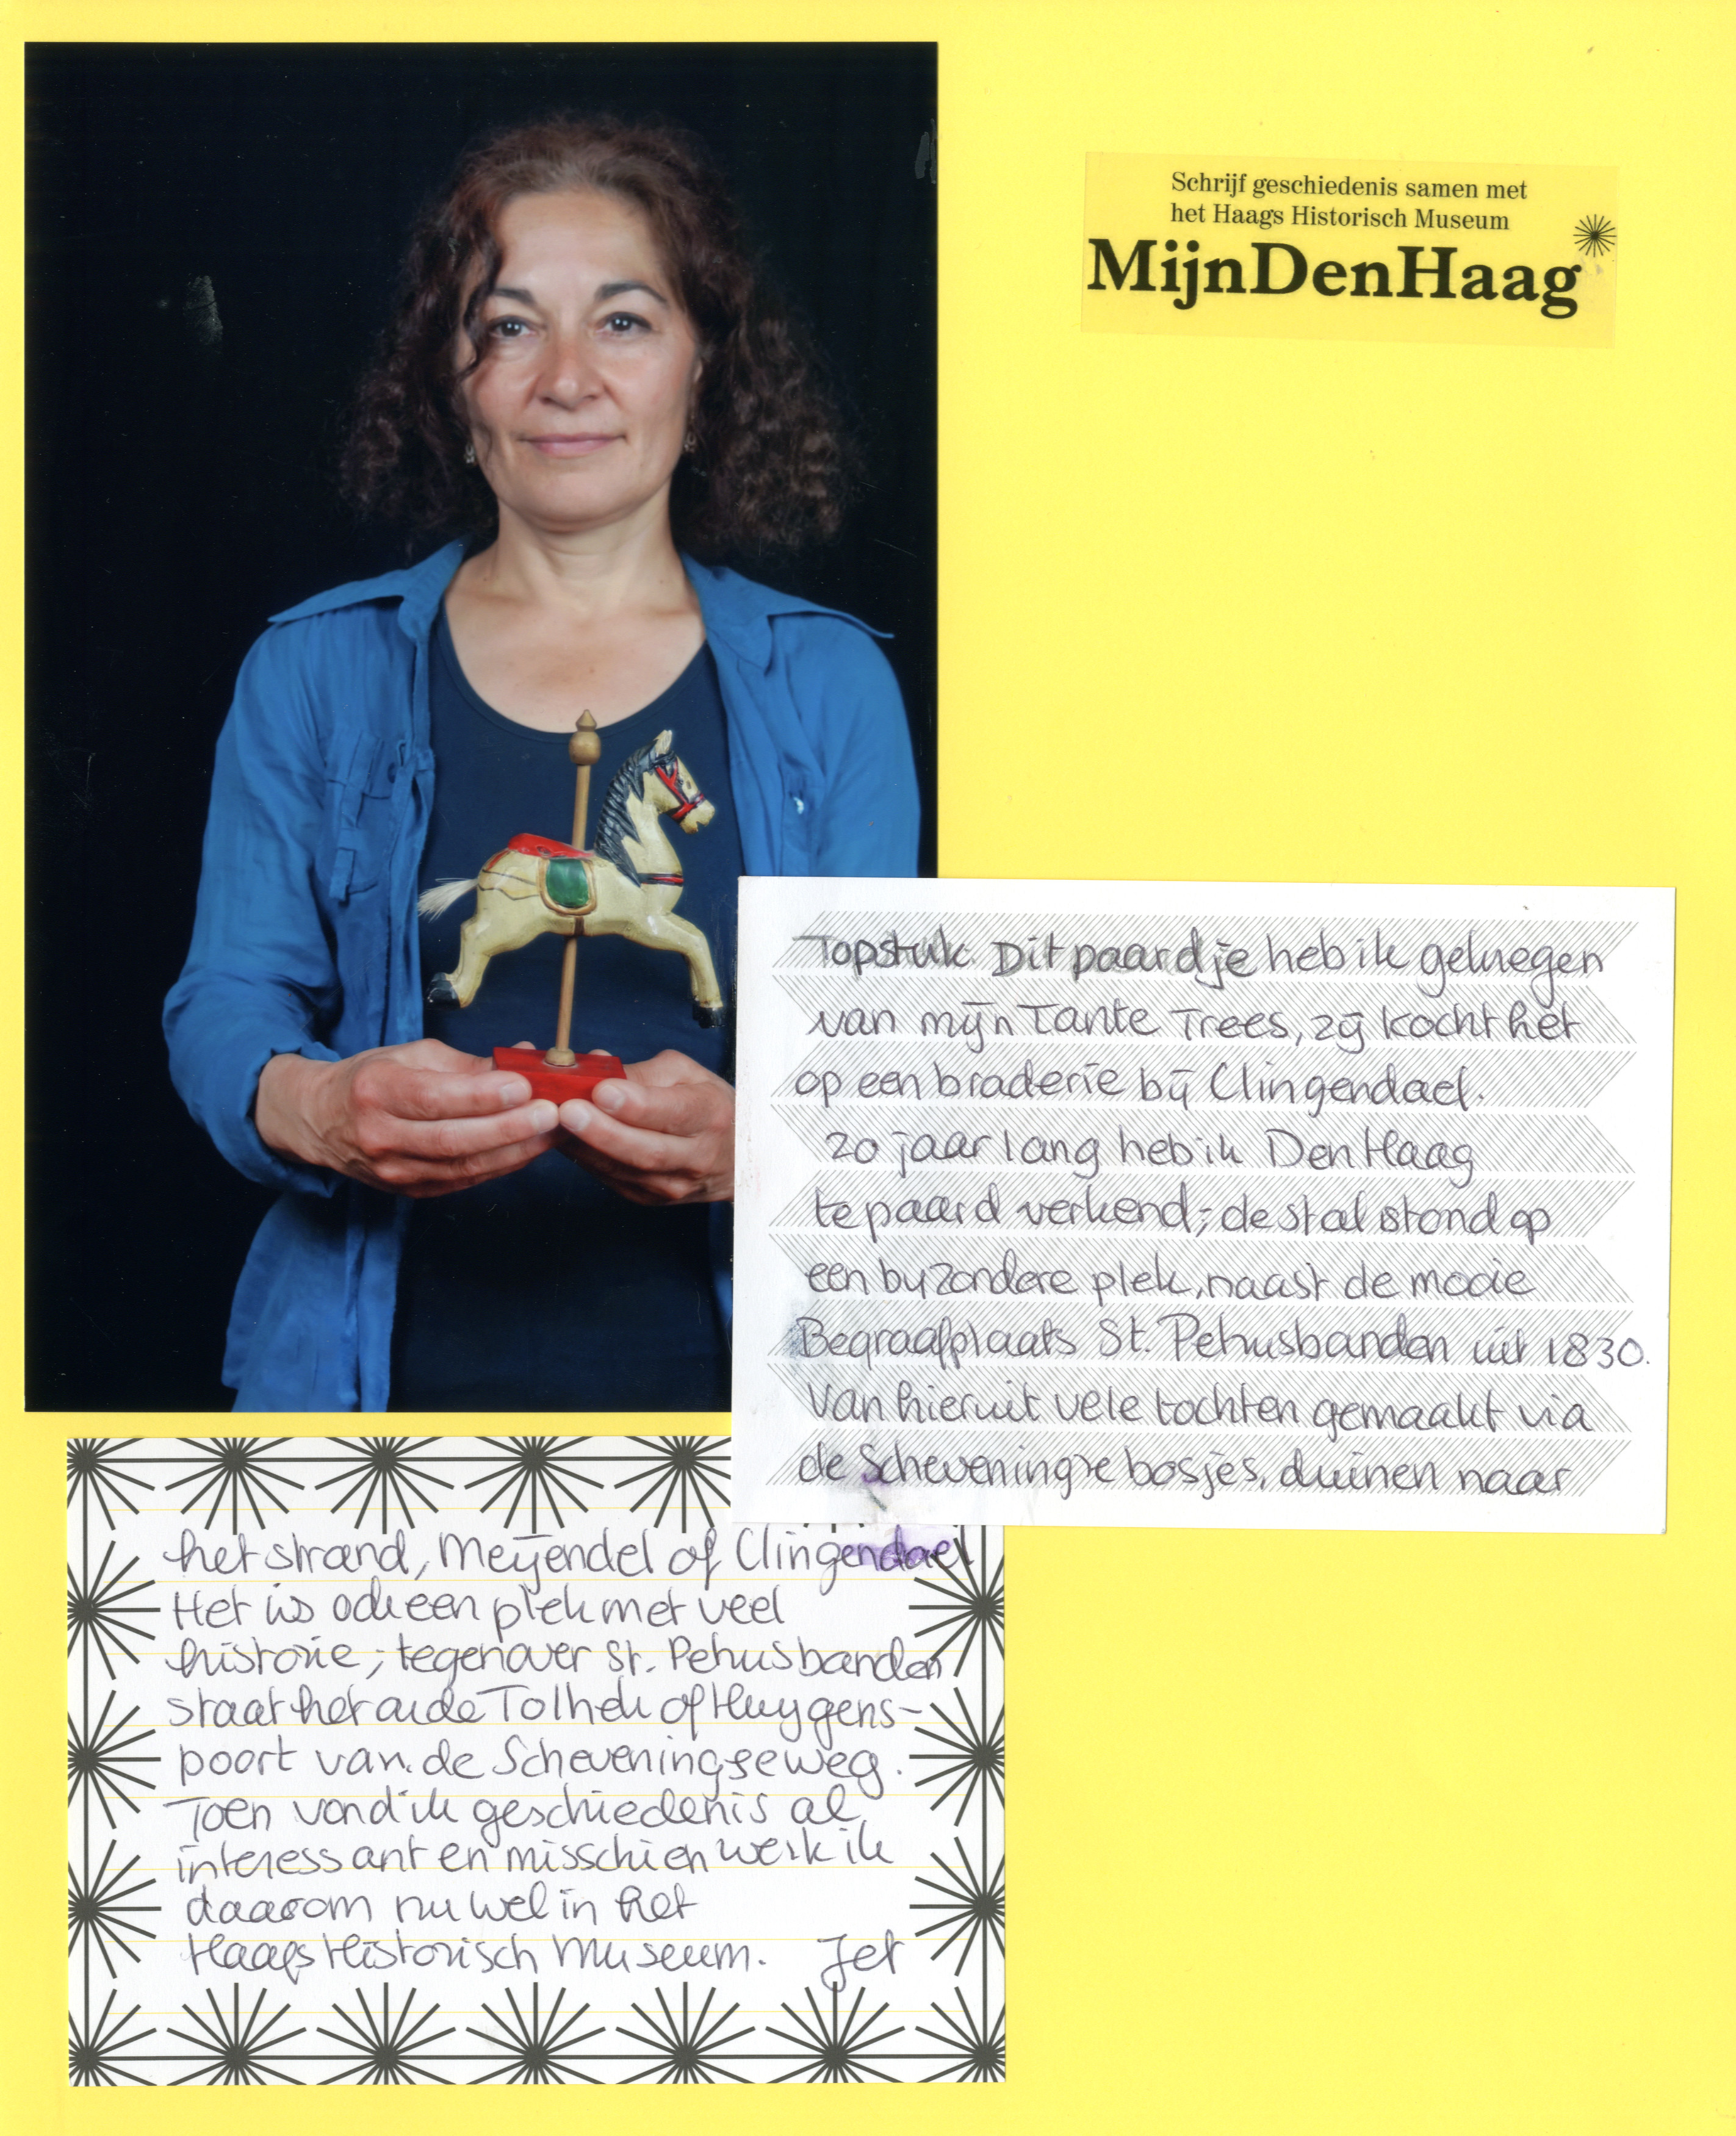 Schrijf geschiedenis samen met
het Haags Historisch Museum
MijnDenHaag
Topstuk. Dit paardje heb ik gekregen
van mijn Tante Trees, zij kocht het
op een braderie bij Clingendael.
20 jaar lang heb ik Den Haag
te paard verkend; de stal stond op
een byzondere plek, naast de mooie
Begraafplaats St. Petrusbanden uit 1830.
Van hieruit vele tochten gemaakt via
de Scheveningse bosjes, duinen naar
het strand, Meijendel of Clingendael.
Het is ook een plek met veel
historie; tegenover St. Petrusbanden
staat het oude Tolhek of Huygens-
poort van de Scheveningseweg.
Toen vond ik geschiedenis al
interessant en misschien werk ik
daarom nu wel in het
Haags Historisch Museum. Jet